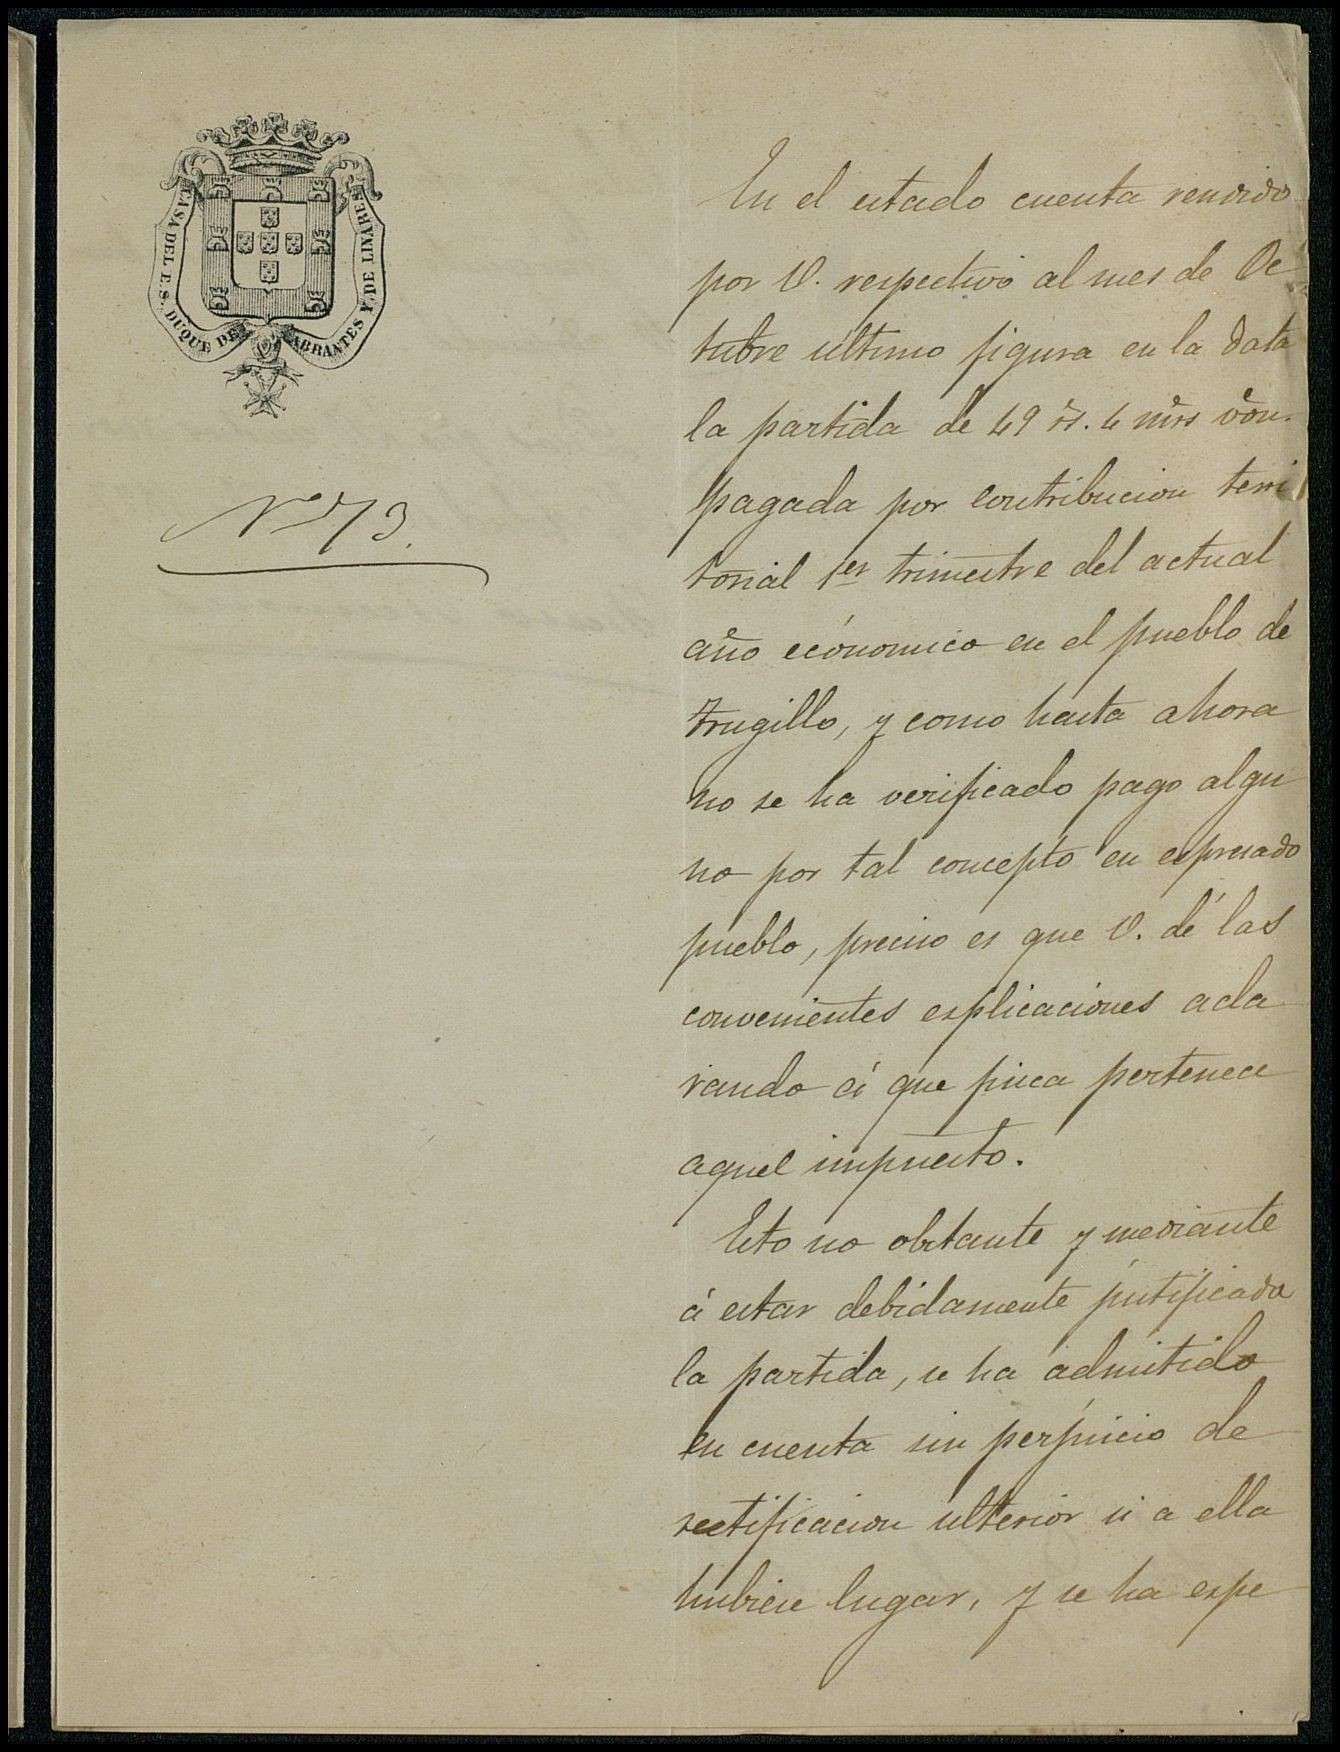 CASA DEL E. S. DUQUE DE ABRANTES Y DE LINARES
Nº 73.
En el estado cuenta rendido
por V. respectivo al mes de Oc
tubre ultimo figura en la data
la partida de 49 rs. 4 mrs von.
pagada por contribucion terri
torial 1er trimestre del actual
año económico en el pueblo de
Trugillo, y como hasta ahora
no se ha verificado pago algu
no por tal concepto en espresado
pueblo, preciso es que V. dé las
convenientes esplicaciones acla
rando á que finca pertenece
aquel impuesto.
Esto no obstante y mediante
á estar debidamente justificada
la partida, se ha admitido
en cuenta sin perjuicio de
rectificacion ulterior si a ella
hubiese lugar, y se ha espe